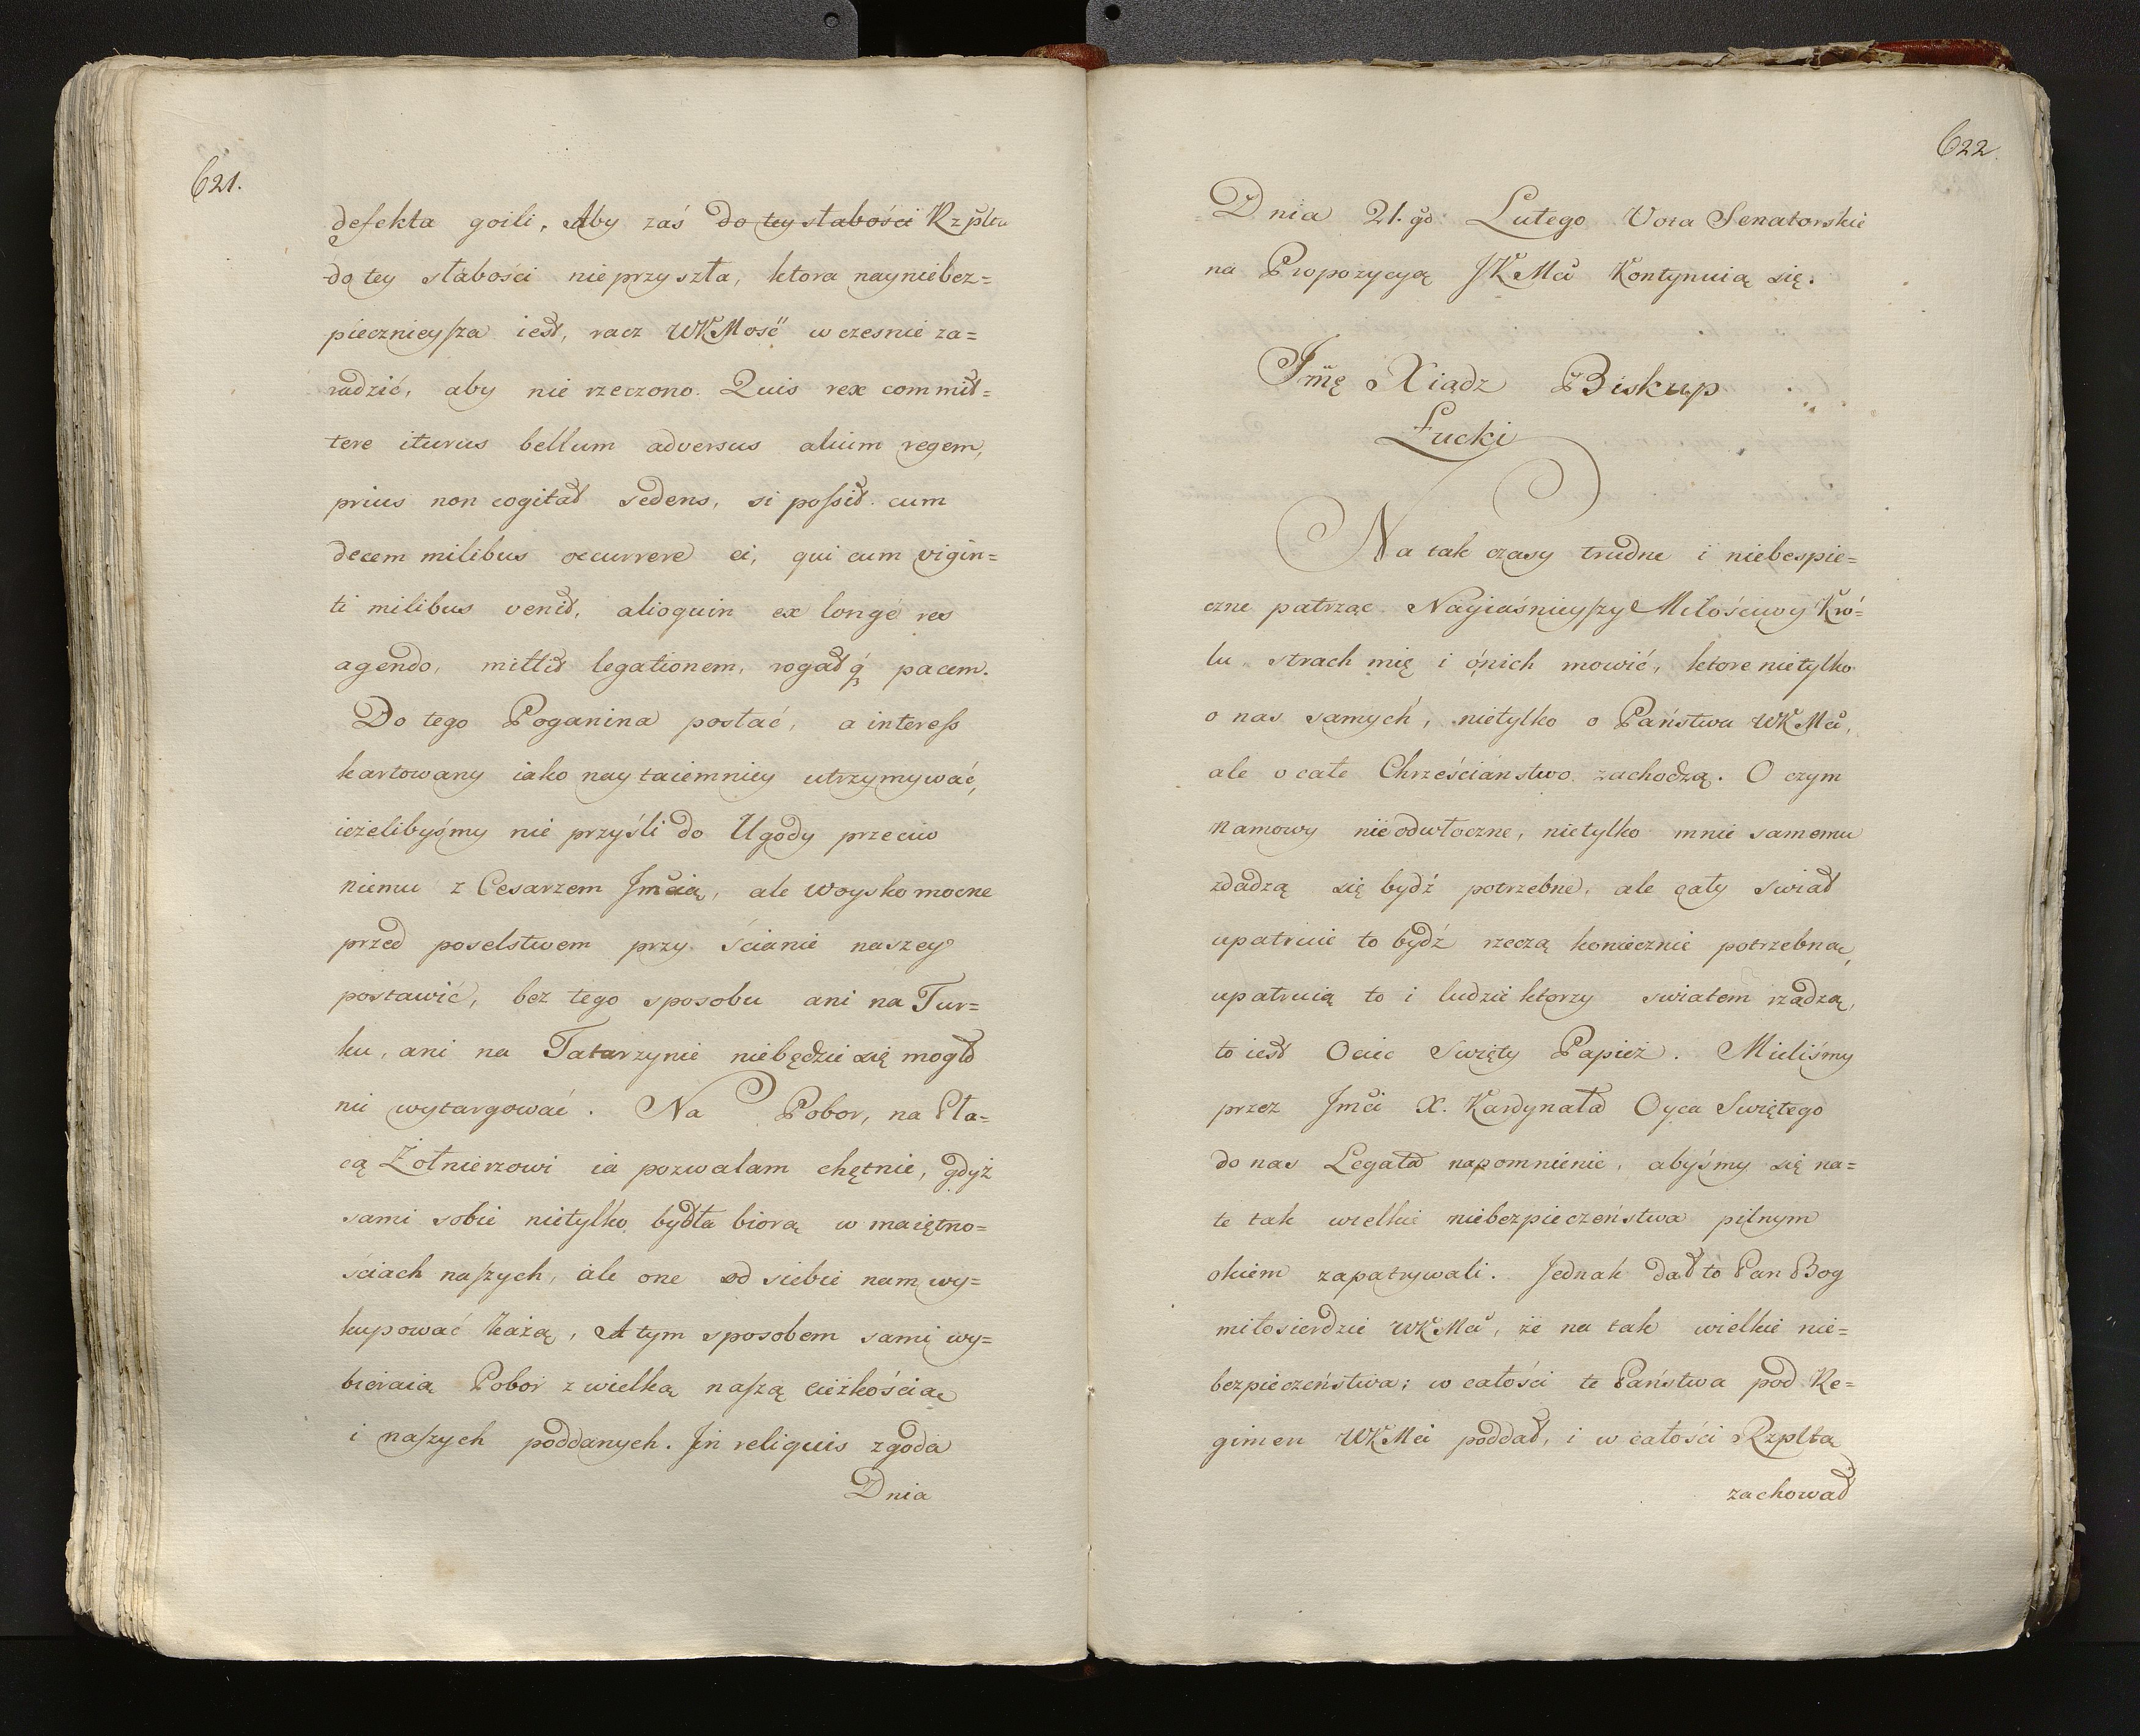 621.
defekta goili, Aby zaś do tey słabości Rzplta
do tey słabości nieprzyszła, ktora nayniebez=
piecznieysza iest, racz WKMość wczesnie za=
radzić, aby nie rzeczono. Quis rex commit=
tere iturus bellum adversus alium regem,
prius non cogitat sedens, si possit cum
decem milibus occurrere ei, qui cum vigin=
ti milibus venit, alioquin ex longé res
agendo, mittit legationem, rogat q́ pacem.
Do tego Poganina posłać, a interess
kartowany iako naytaiemniey utrzymywać,
ieżelibyśmy nie przyśli do Ugody przeciw
niemu z Cesarzem Jmcią, ale woysko mocne
przed poselstwem przy ścianie naszey
postawić, bez tego sposobu ani na Tur=
ku, ani na Tatarzynie niebędzie się mogło
nic wytargować. Na Pobor, na Pła=
cą Żołnierzowi ia pozwalam chętnie, gdyż
sami sobie nietylko bydła biorą w maiętno=
ściach naszych, ale one od siebie nam wy=
kupować każą, A tym sposobem sami wy=
bieraią Pobor z wielką naszą cieżkością
i naszych poddanych. Jn reliquis zgoda
Dnia
622.
Dnia 21. go Lutego Vota Senatorskie
na Propozycyą JKMci Kontynuią się.
Jmę Xiądz Biskup
Łucki
Na tak czasy trudne i niebespie=
czne patrząc Nayiaśnieyszy Miłościwy Kró=
lu, strach mię i ónich mowić, ktore nietylko
o nas samych, nietylko o Państwa WKMci,
ale o całe Chrześciaństwo zachodzą. O czym
namowy nieodwłoczne, nietylko mnie samemu
zdadzą się bydź potrzebne, ale cały swiat
upatruie to bydź rzeczą koniecznie potrzebną,
upatruią to i ludzie ktorzy swiatem rządzą,
to iest Ociec Swięty Papież. Mieliśmy
przez Jmci X. Kardynała Oyca Swiętego
do nas Legata napomnienie, abyśmy się na=
te tak wielkie niebezpieczeństwa pilnym
okiem zapatrywali. Jednak dał to Pan Bog
miłosierdzie WKMci, że na tak wielkie nie=
bezpieczeństwa; w całości te Państwa pod Re=
gimen WKMci poddał, i w całości Rzpltą
zachował